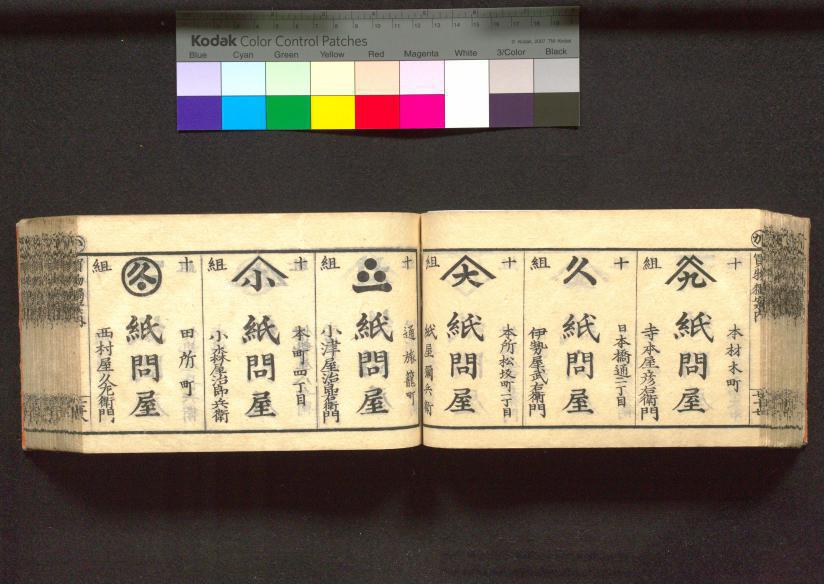 Kodak Color Control Patches
© Kodak, 2007 TM: Kodak
Blue Cyan Green Yellow Red Magenta White 3/Color Black
か
買物獨案内
十組
本材木町
紙問屋
寺本屋彦右衛門
十組
久
日本橋通二丁目
紙問屋
伊勢屋武右衛門
十組
大
本所松坂町一丁目
紙問屋
紙屋彌兵衛
十組
通旅籠町
紙問屋
小津屋治郎右衛門
十組
小
本町四丁目
紙問屋
小森屋治郎兵衛
十組
久
田所町
紙問屋
西村屋久右衛門
買物獨案内